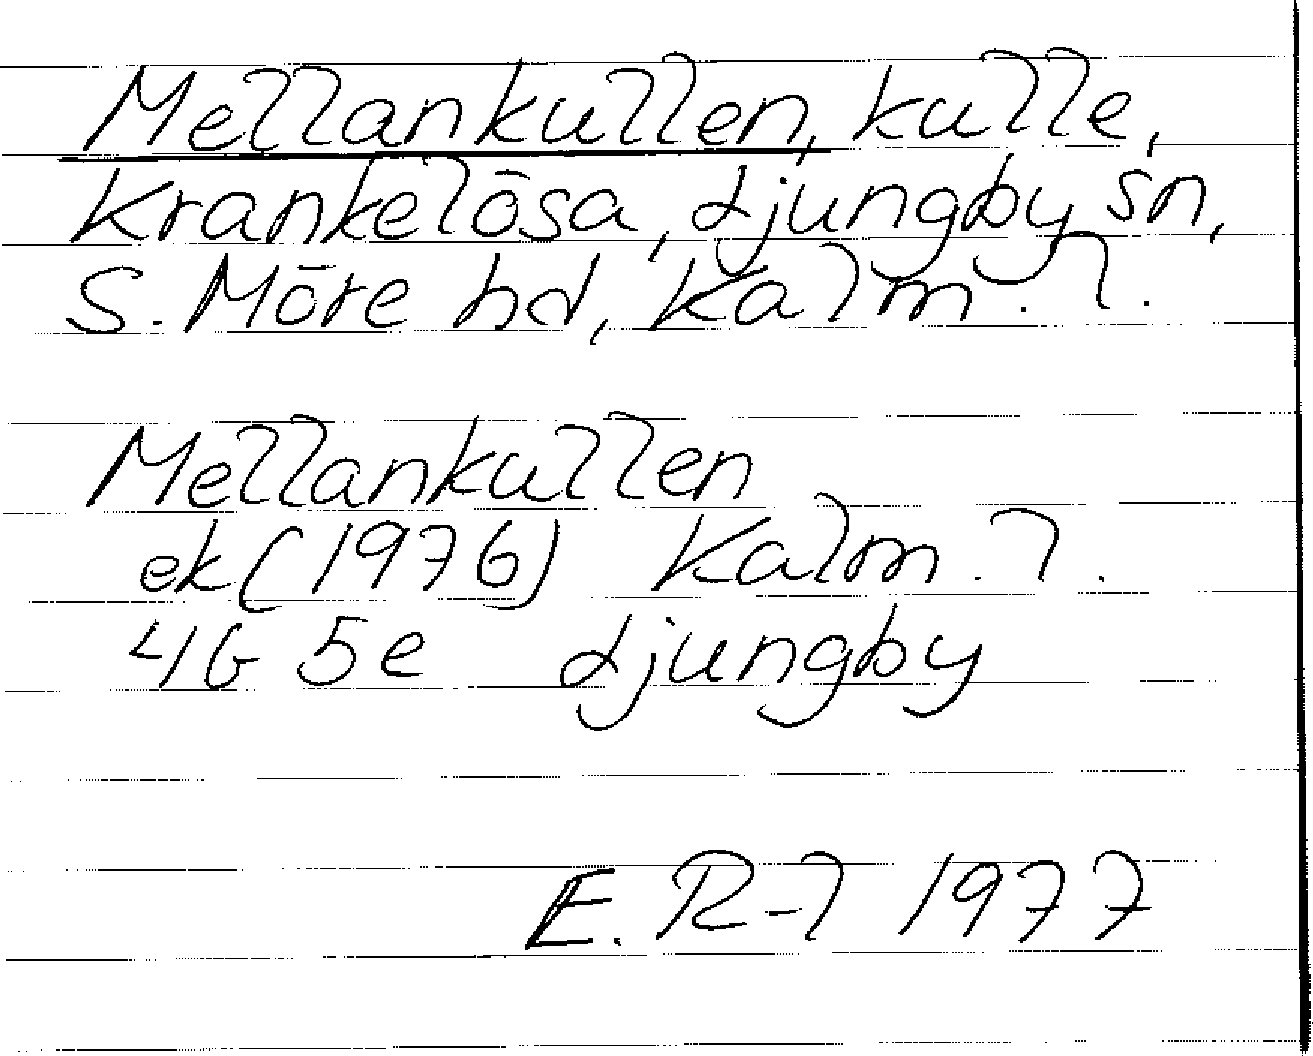 Mellankullen, kulle,
Krankelösa, Ljungby sn,
S. Möre hd, Kalm. l.
Mellankullen
ek (1976) Kalm. l.
4G 5e Ljungby
E. R-l 1977